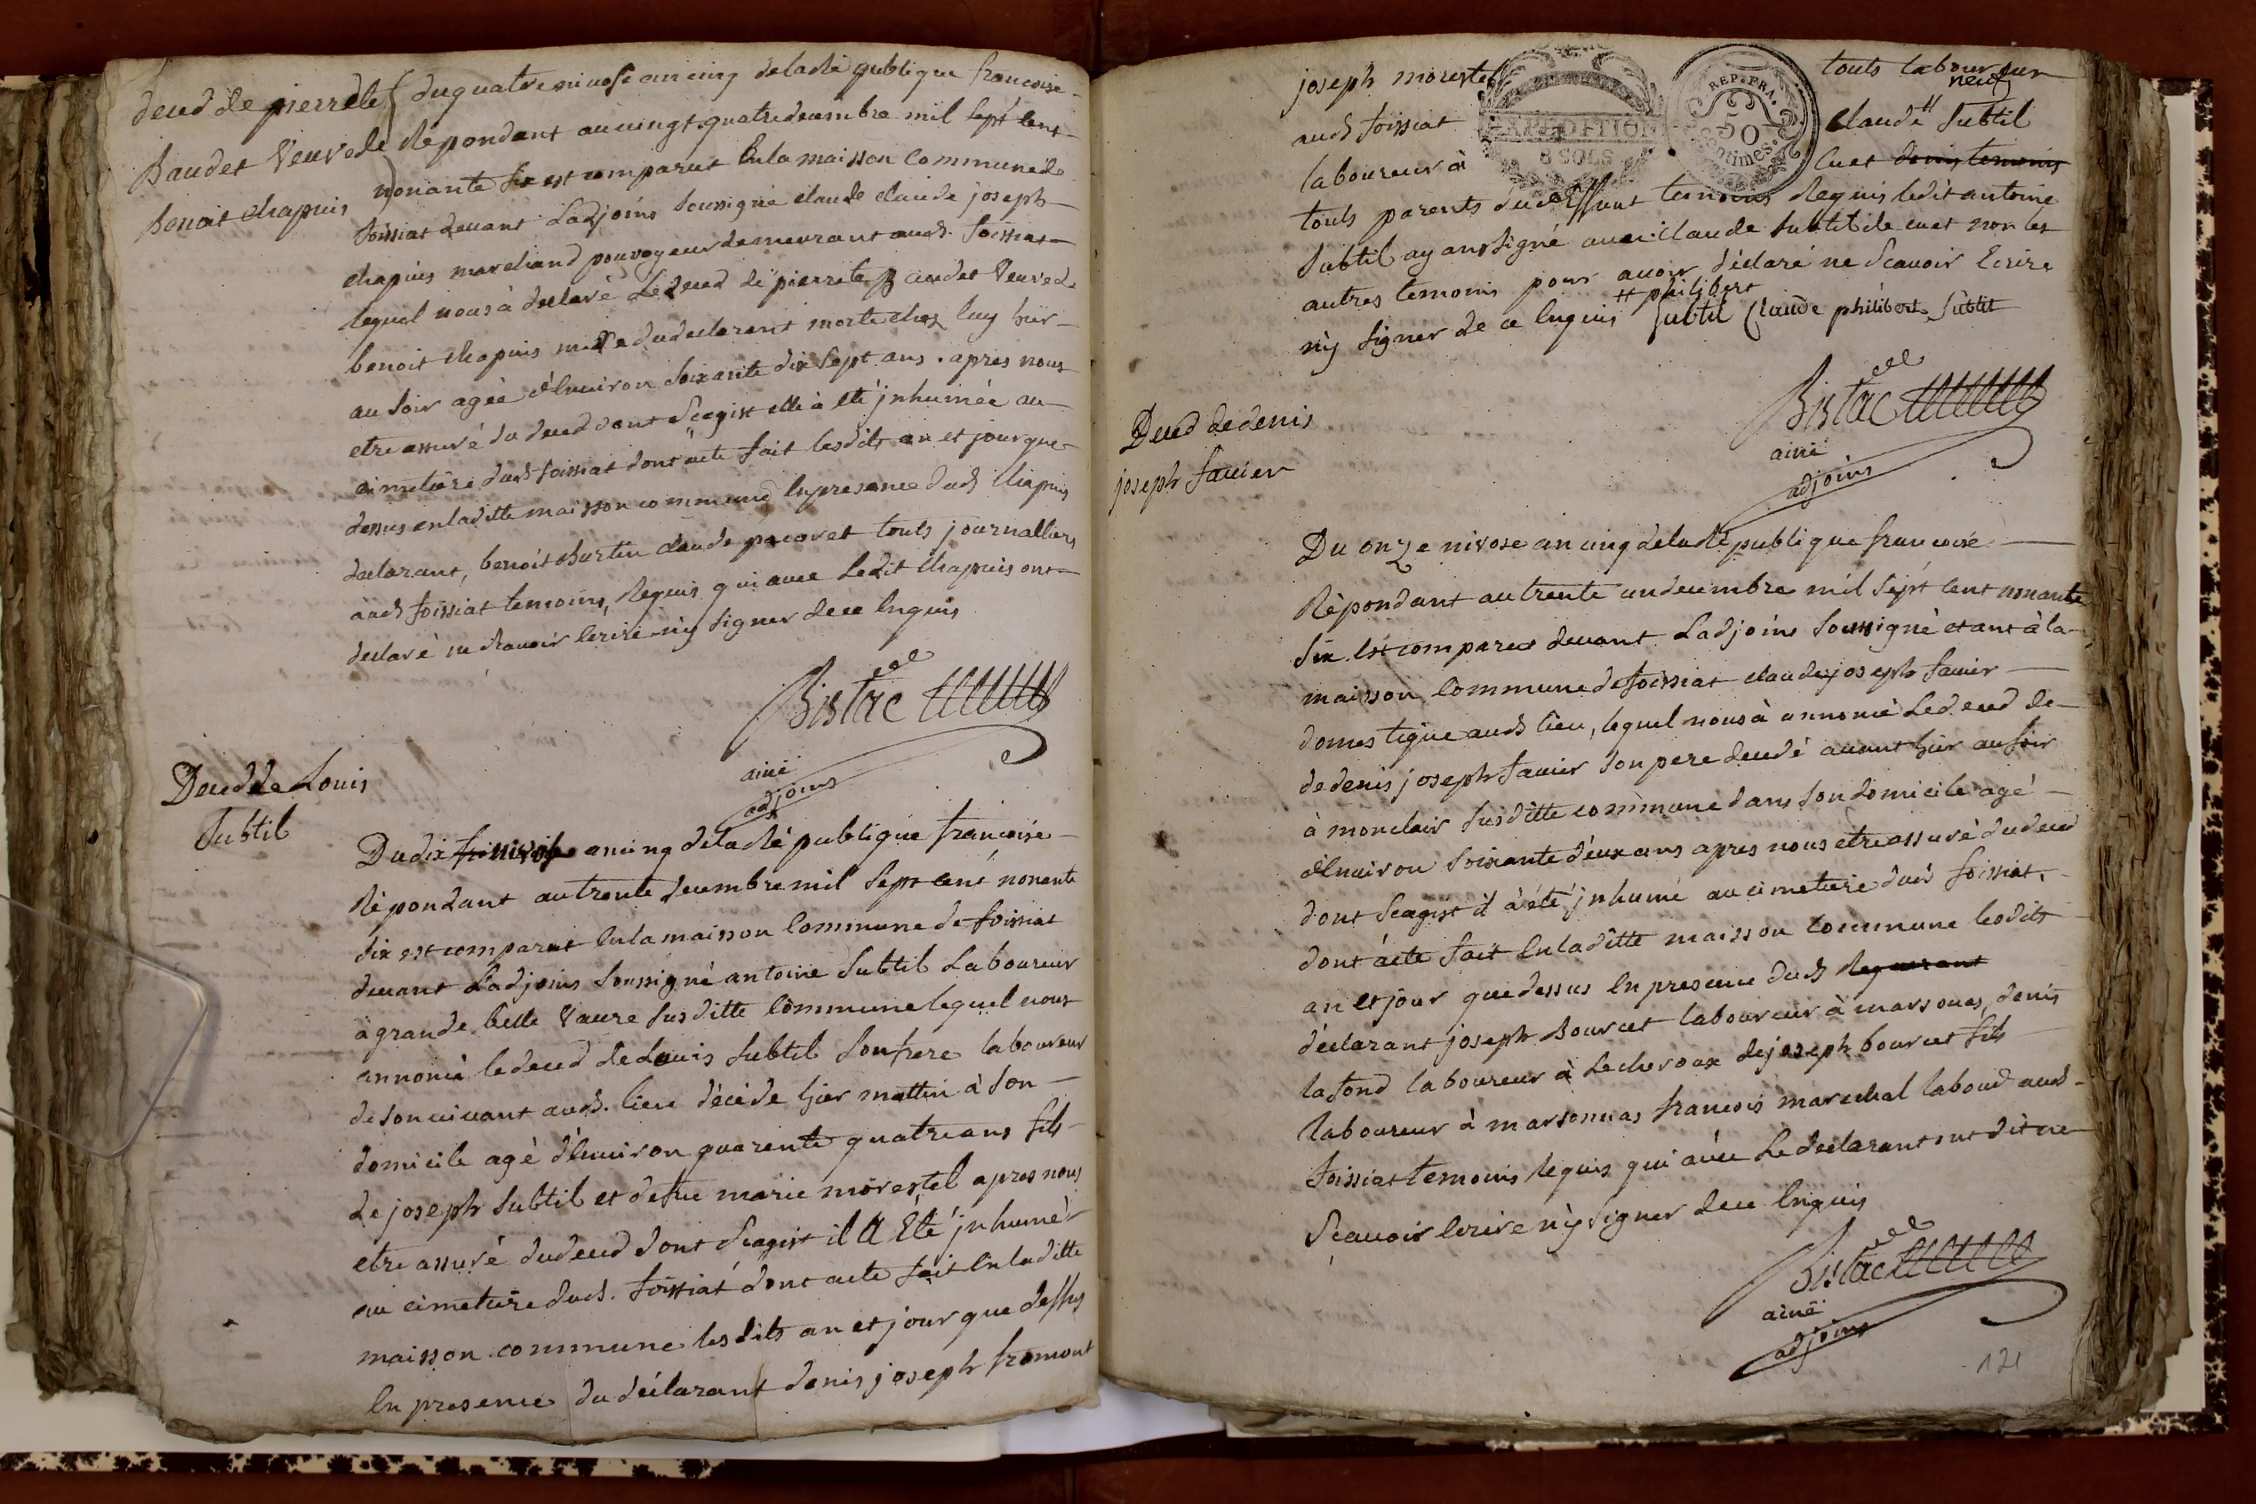 deud de pierrete
Baudet Veuve de
benoit chapuis
du quatre nivose an cinq de la Ré publique francoise
Ré pondant au vingt quatre deumbre mil sept cent
nonante six est comparut En la maisson Commune de
foissiat devant Ladjoins soussigné claude claude joseph
chapuis marchand pouvoyeur demeurant aud. foissiat
lequel nous à declaré Le deud de pierrete Baudet Veuve de
benoit chapuis mere du declarent morte chez luy hier
au soir agée d'Environ soixante dix sept ans. apres nous
etre assuré du deud dont Scagist elle à eté jnhumée au
cimetiere dud foissiat dont acte fait lesdits an et jour que
dessus en laditte maisson commune En presence dud Chapuis
declarant, benoit chartin claude pacoret touts journalliers
aud foissiat temoins, Requis qui avec Ledit chapuis ont
declaré ne Scavoir Ecrire ny signer de ce Enquis
Bistac
ainé
adjoins
Deud de Louis
Subtil
Du dix nivose an cinq de la Ré publique francoise
Ré pondant au trente deumbre mil sept cent nonante
six est comparut En la maisson Commune de foissiat
devant Ladjoins soussigné antoine Subtil Laboureur
à grande belle Vaure susditte Commune lequel nous
annoncé le deud de Louis Subtil son frere laboureur
de son vivant aud. lieu décéde hier mattin à son
domicile agé d'Environ quarente quatre ans fils
de joseph Subtil et de fue marie morestel apres nous
etre assuré du deud dont Scagist il A Eté jnhumé
au cimetiere dud. foissiat dont acte fait En laditte
maisson commune lesdits an et jour que dessus
En presence du déclarant denis joseph fromont
joseph morestel touts laboureur
aud foissiat neuf
laboureur à Claude # Subtil
EXPEDITION
8 SOLS
REP. FRA.
50
centimes
Cuet denis temoins
touts parents du deffunt temoins Requis ledit antoine
Subtil ayans signé avec Claude Subtil de cuet non les
autres temoins pour avoir déclaré ne Scavoir Ecrire
ny signer de ce Enquis # philibert
Subtil Claude philibert Subtil
Bistac
ainé
adjoins
Deud de denis
joseph favier
Du onze nivose an cinq de la Ré publique francoise
Répondant au trente un deumbre mil sept cent nonante
six Est comparut devant Ladjoins soussigné etant à la
maisson Commune de foissiat claude joseph favier
domestique aud lieu, lequel nous à annoncé Le deud de
de denis joseph favier son pere deudé avant hier au soir
à monclair susditte commune dans son domicile agé
d'Environ soixante deux ans apres nous etre assuré du deud
dont Scagist il à été jnhumé au cimetiere dud foissiat
dont acte fait En laditte maisson Commune lesdits
an et jour que dessus En presence dud Requerant
déclarant joseph Bourcet laboureur à marsonas, denis
lafond laboureur à Lecheroux de joseph bourcet fils
laboureur à marsonnas francois marechal laboud aud
foissiat temoins Requis qui avec Le declarant ont dit ne
Scavoir Ecrire ny signer de ce Enquis
Bistac
ainé
adjoins
121